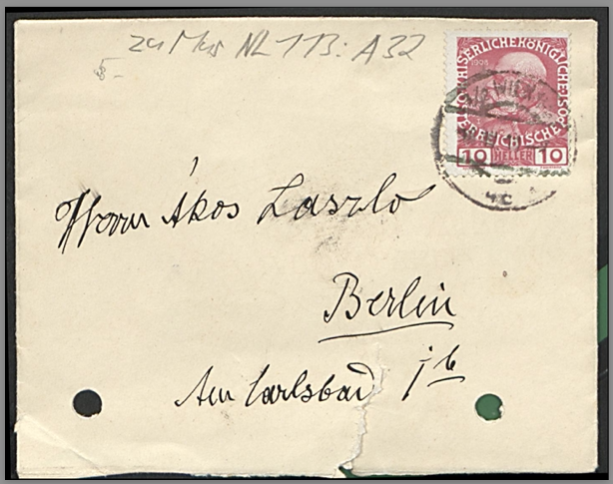 zu Mus NL 113: A 32
KAISERLICHE KÖNIGLICHE
1908
ÖSTERREICHISCHE
10 HELLER 10
Herrn Ákos Laszlo
Berlin
Am Carlsbad 16